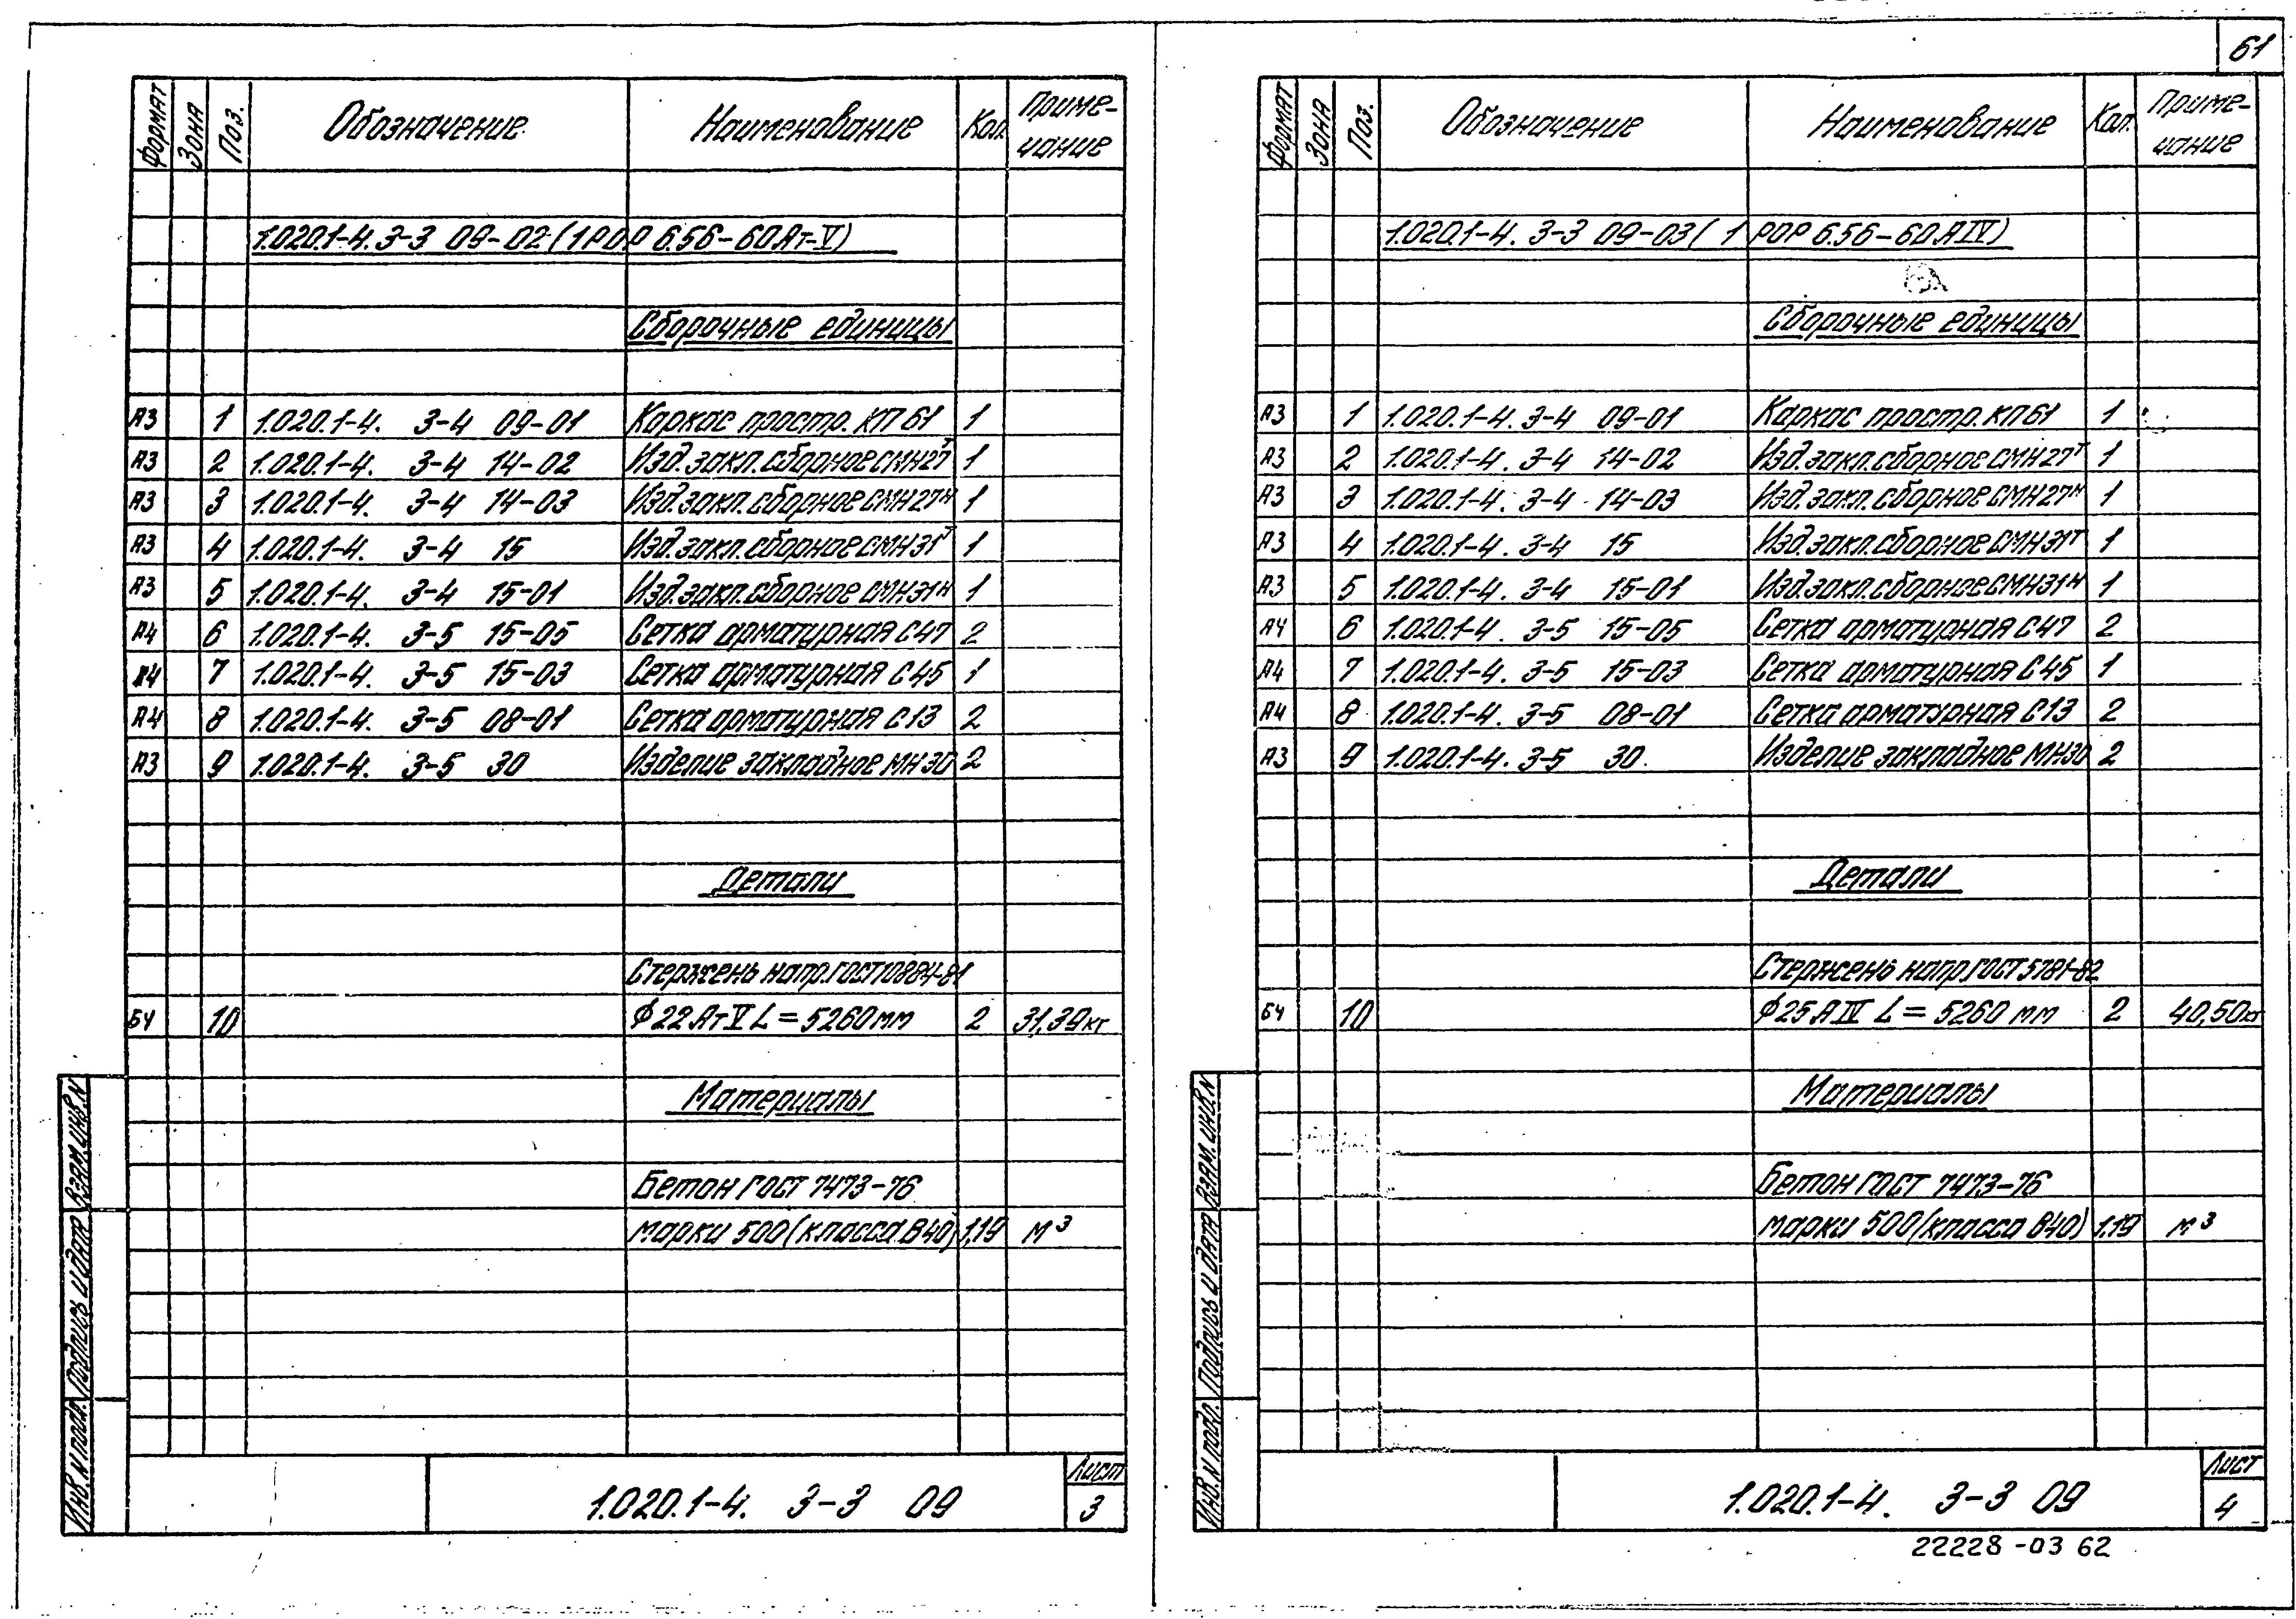 61
Формат Зона Поз. Обозначение Наименование Кол. Приме-
чание
1.020.1-4. 3-3 09-02 (1РОР 6.56-60Ат-V)
Сборочные единицы
А3 1 1.020.1-4. 3-4 09-01 Каркас простр. КП61 1
А3 2 1.020.1-4. 3-4 14-02 Изд. закл. сборное СМН27т 1
А3 3 1.020.1-4. 3-4 14-03 Изд. закл. сборное СМН27н 1
А3 4 1.020.1-4. 3-4 15 Изд. закл. сборное СМН31т 1
А3 5 1.020.1-4. 3-4 15-01 Изд. закл. сборное СМН31н 1
А4 6 1.020.1-4. 3-5 15-05 Сетка арматурная С47 2
А4 7 1.020.1-4. 3-5 15-03 Сетка арматурная С45 1
А4 8 1.020.1-4. 3-5 08-01 Сетка арматурная С13 2
А3 9 1.020.1-4. 3-5 30 Изделие закладное МН30 2
Детали
Стержень напр. ГОСТ 10884-81
БЧ 10 φ22АтV L=5260мм 2 31,39кг
Материалы
Бетон ГОСТ 7473-76
марки 500 (класса В40) 1,19 м³
Взам. инв. N
Подпись и дата
Инв. N подл.
1.020.1-4. 3-3 09
Лист
3
Формат Зона Поз. Обозначение Наименование Кол. Приме-
чание
1.020.1-4. 3-3 09-03 (1РОР 6.56-60АIV)
Сборочные единицы
А3 1 1.020.1-4. 3-4 09-01 Каркас простр. КП61 1
А3 2 1.020.1-4. 3-4 14-02 Изд. закл. сборное СМН27т 1
А3 3 1.020.1-4. 3-4 14-03 Изд. закл. сборное СМН27н 1
А3 4 1.020.1-4. 3-4 15 Изд. закл. сборное СМН31т 1
А3 5 1.020.1-4. 3-4 15-01 Изд. закл. сборное СМН31н 1
А4 6 1.020.1-4. 3-5 15-05 Сетка арматурная С47 2
А4 7 1.020.1-4. 3-5 15-03 Сетка арматурная С45 1
А4 8 1.020.1-4. 3-5 08-01 Сетка арматурная С13 2
А3 9 1.020.1-4. 3-5 30 Изделие закладное МН30 2
Детали
Стержень напр. ГОСТ 5781-82
БЧ 10 φ25АIV L=5260мм 2 40,50кг
Материалы
Бетон ГОСТ 7473-76
марки 500 (класса В40) 1,19 м³
Взам. инв. N
Подпись и дата
Инв. N подл.
1.020.1-4. 3-3 09
Лист
4
22228-03 62